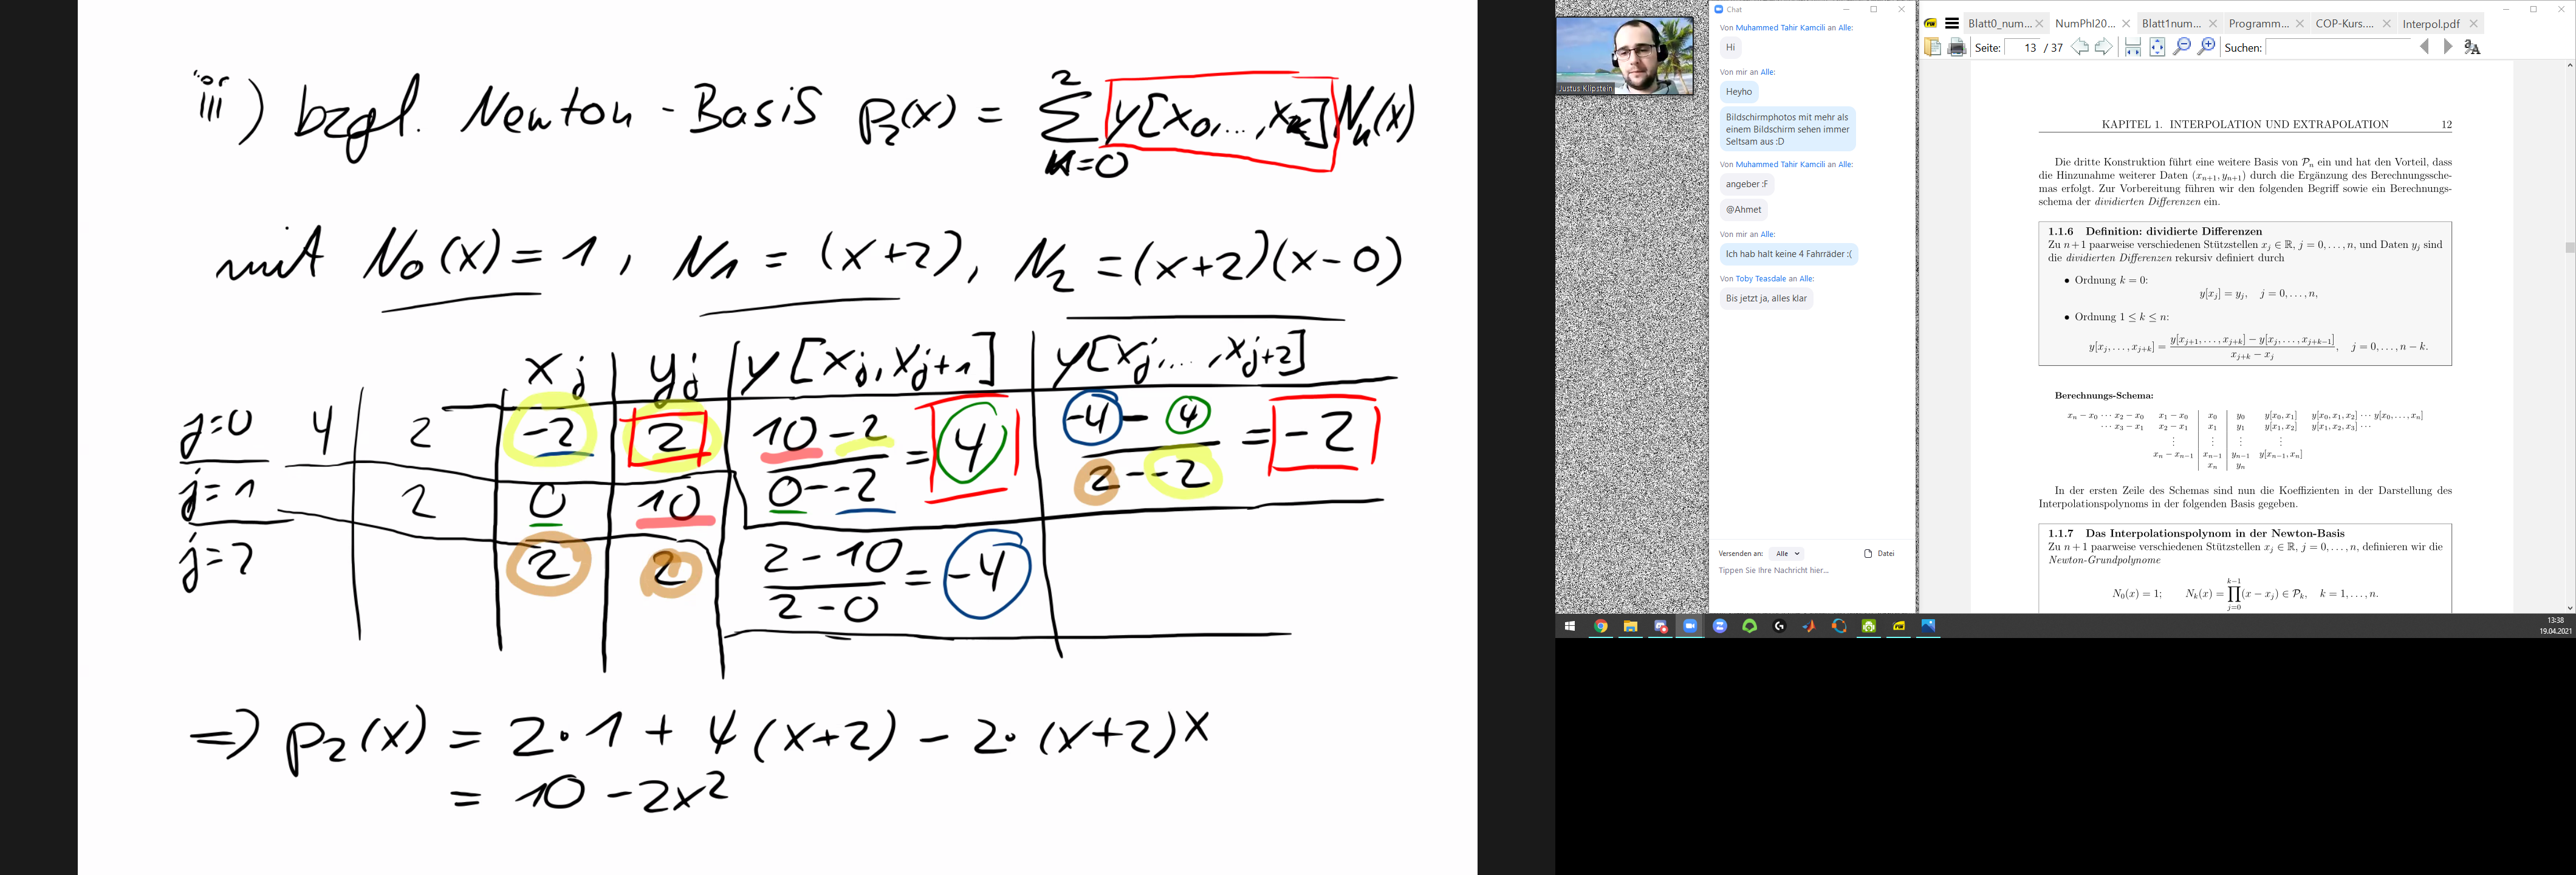 iii) bzgl. Newton-Basis p₂(x) = ∑_{k=0}^{2} y[x₀,...,xₖ] Nₖ(x)
mit N₀(x) = 1, N₁ = (x+2), N₂ = (x+2)(x-0)
xj yj y[xj,xj+1] y[xj,...,xj+2]
j=0 4 2 -2 2 (10-2)/(0--2) = 4 (-4-4)/(2--2) = -2
j=1 2 0 10
j=2 2 2 (2-10)/(2-0) = -4
=> p₂(x) = 2·1 + 4(x+2) - 2·(x+2)x
= 10-2x²
Justus Klipstein
Chat
Von Muhammed Tahir Kamcili an Alle:
Hi
Von mir an Alle:
Heyho
Bildschirmphotos mit mehr als
einem Bildschirm sehen immer
Seltsam aus :D
Von Muhammed Tahir Kamcili an Alle:
angeber :F
@Ahmet
Von mir an Alle:
Ich hab halt keine 4 Fahrräder :(
Von Toby Teasdale an Alle:
Bis jetzt ja, alles klar
Versenden an: Alle Datei
Tippen Sie Ihre Nachricht hier...
Blatt0_num... NumPhI20... Blatt1num... Programm... COP-Kurs.... Interpol.pdf
Seite: 13 / 37 Suchen:
KAPITEL 1. INTERPOLATION UND EXTRAPOLATION 12
Die dritte Konstruktion führt eine weitere Basis von 𝒫ₙ ein und hat den Vorteil, dass
die Hinzunahme weiterer Daten (xₙ₊₁, yₙ₊₁) durch die Ergänzung des Berechnungssche-
mas erfolgt. Zur Vorbereitung führen wir den folgenden Begriff sowie ein Berechnungs-
schema der dividierten Differenzen ein.
1.1.6 Definition: dividierte Differenzen
Zu n+1 paarweise verschiedenen Stützstellen xj ∈ ℝ, j = 0, . . . , n, und Daten yj sind
die dividierten Differenzen rekursiv definiert durch
• Ordnung k = 0:
y[xj] = yj, j = 0, . . . , n,
• Ordnung 1 ≤ k ≤ n:
y[xj, . . . , xj+k] = (y[xj+1, . . . , xj+k] − y[xj, . . . , xj+k−1])/(xj+k − xj), j = 0, . . . , n − k.
Berechnungs-Schema:
xn − x0 ··· x2 − x0 x1 − x0 x0 y0 y[x0, x1] y[x0, x1, x2] ··· y[x0, . . . , xn]
··· x3 − x1 x2 − x1 x1 y1 y[x1, x2] y[x1, x2, x3] ···
⋮ ⋮ ⋮ ⋮
xn − xn−1 xn−1 yn−1 y[xn−1, xn]
xn yn
In der ersten Zeile des Schemas sind nun die Koeffizienten in der Darstellung des
Interpolationspolynoms in der folgenden Basis gegeben.
1.1.7 Das Interpolationspolynom in der Newton-Basis
Zu n + 1 paarweise verschiedenen Stützstellen xj ∈ ℝ, j = 0, . . . , n, definieren wir die
Newton-Grundpolynome
N₀(x) = 1; Nₖ(x) = ∏_{j=0}^{k−1} (x − xj) ∈ 𝒫ₖ, k = 1, . . . , n.
13:38
19.04.2021